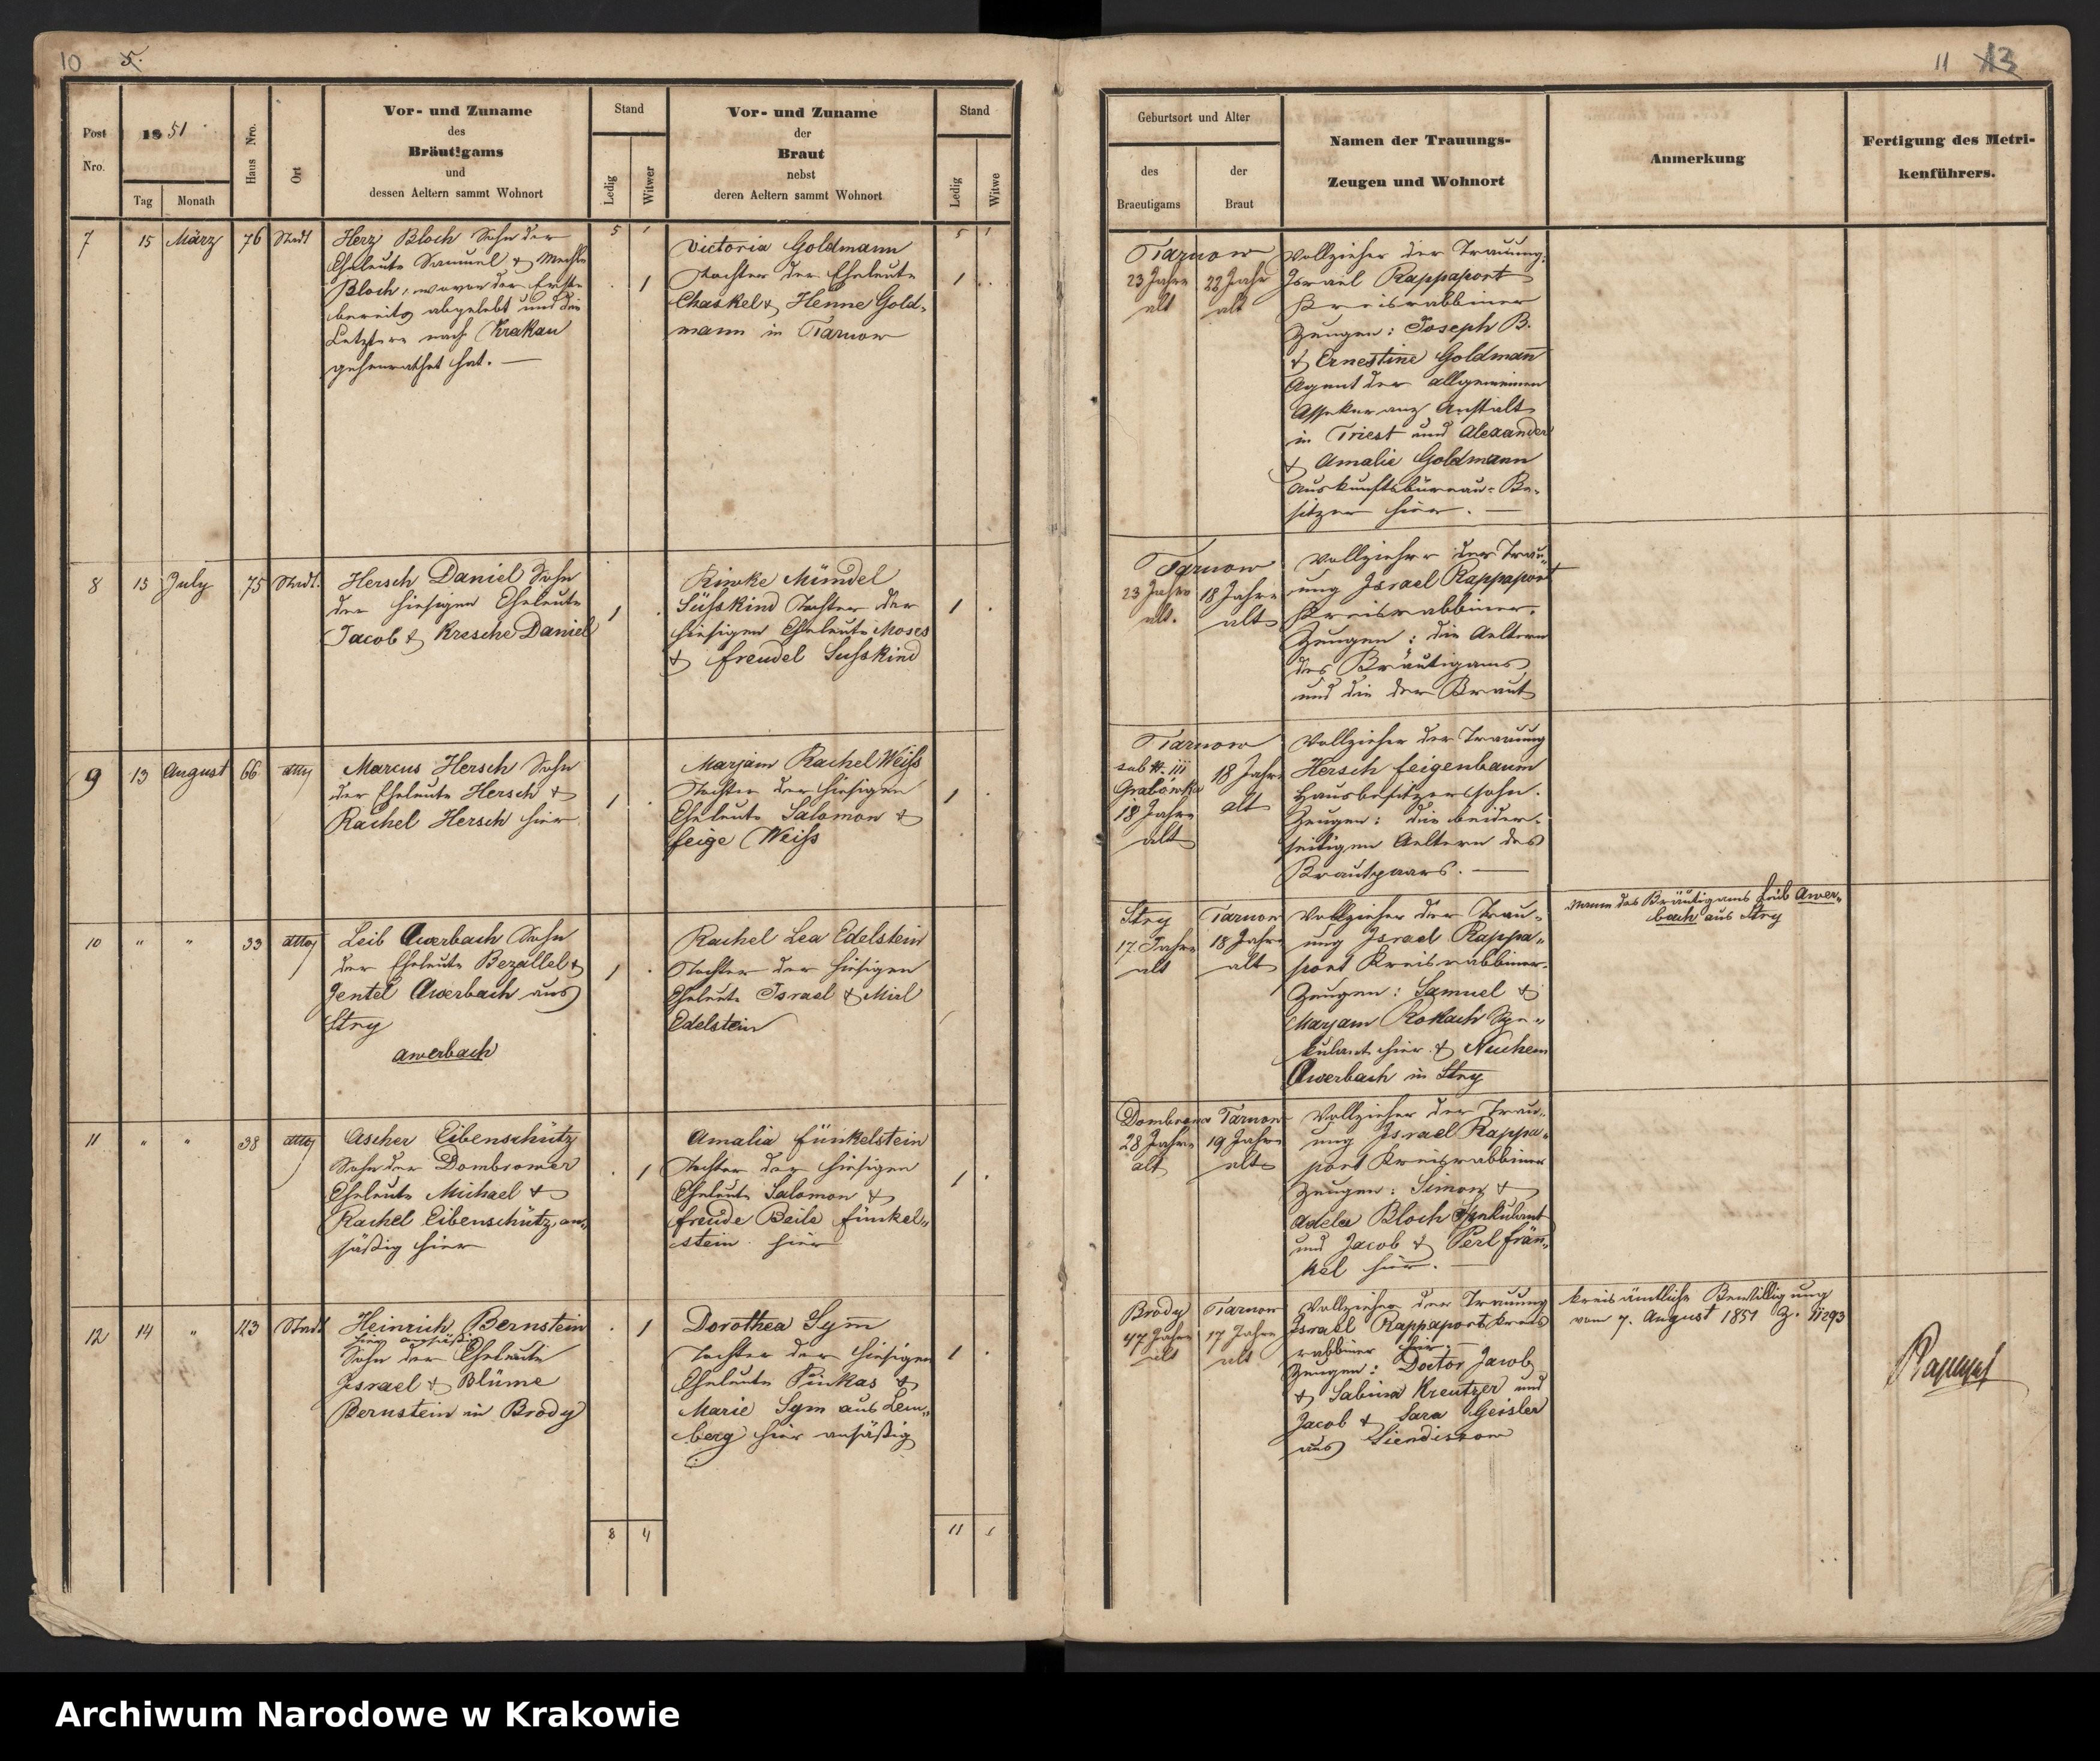 10 5.
Post Nro.
1851
Tag
Monath
Haus Nro.
Ort
Vor- und Zuname
des
Bräutigams
und
dessen Aeltern sammt Wohnort
Stand
Ledig
Witwer
Vor- und Zuname
der
Braut
nebst
deren Aeltern sammt Wohnort
Stand
Ledig
Witwe
7 15 März 76 Stadt
Herz Bloch Sohn der
Eheleute Samuel & Mechle
Bloch, wovon der Erste
bereits abgelebt und die
Letztere nach Krakau
geheurathet hat. —
5 1
. 1
Victoria Goldmann
Tochter der Eheleute
Chaskel & Henne Gold-
mann in Tarnow
5 1
1 .
8 15 July 75 Stadt.
Hersch Daniel Sohn
der hiesigen Eheleute
Jacob & Kresche Daniel
1 .
Riwke Mündel
Süsskind Tochter der
hiesigen Eheleute Moses
& Freudel Susskind
1 .
9 13 August 66 dtto
Marcus Hersch Sohn
der Eheleute Hersch &
Rachel Hersch hier
1 .
Marjam Rachel Weiss
Tochter der hiesigen
Eheleute Salomon &
Feige Weiss
1 .
10 " " 33 dtto
Leib Awerbach Sohn
der Eheleute Bezallel &
Jentel Awerbach aus
Stry
Awerbach
1 .
Rachel Lea Edelstein
Tochter der hiesigen
Eheleute Israel & Mirl
Edelstein
11 " " 38 dtto
Ascher Eibenschütz
Sohn der Dombrower
Eheleute Michael &
Rachel Eibenschütz, an-
säßig hier
. 1
Amalia Fünkelstein
Tochter der hiesigen
Eheleute Salomon &
Freude Beile Fünkel-
stein hier
1 .
12 14 " 123 Stadt
Heinrich Bernstein
hier ansäßig
Sohn der Eheleute
Israel & Blüme
Bernstein in Brody
. 1
Dorothea Sym
Tochter der hiesigen
Eheleute Pinkas &
Marie Sym aus Lem-
berg hier ansäßig
1 .
8 4
11 1
11 13
Geburtsort und Alter
des
Braeutigams
der
Braut
Namen der Trauungs-
Zeugen und Wohnort
Anmerkung
Fertigung des Metri-
kenführers.
Tarnow
23 Jahre alt
22 Jahr alt
Vollzieher der Trauung:
Israel Rappaport
Kreisrabbiner
Zeugen: Joseph B.
& Ernestine Goldmann
Agent der allgemeinen
Assekuranz Anstalt
in Triest und Alexander
& Amalie Goldmann
Auskunftsbüreau-Be-
sitzer hier. —
Tarnow
23 Jahre alt.
18 Jahre alt
Vollzieher der Trau-
ung Israel Rappaport
Kreisrabbiner.
Zeugen: die Aeltern
des Bräutigams
und die der Braut
Tarnow
sub N. iii
Grabówka
18 Jahre
alt
18 Jahre
alt
Vollzieher der Trauung
Hersch Feigenbaum
Hausbesitzersohn.
Zeugen: die beider-
seitigen Aeltern des
Brautpaars. —
Stry
17 Jahre
alt
Tarnow
18 Jahre
alt
Vollzieher der Trau-
ung Israel Rappa-
port Kreisrabbiner.
Zeugen: Samuel &
Marjam Rokach Spe-
kulant hier & Nuchem
Awerbach in Stry
Name des Bräutigams Leib Awer-
bach aus Stry
Dombrowa
28 Jahre
alt
Tarnow
19 Jahre
alt
Vollzieher der Trau-
ung Israel Rappa-
port Kreisrabbiner
Zeugen: Simon &
Adela Bloch Spekulant
und Jacob & Perl Frän-
kel hier. —
Brody
47 Jahre
alt
Tarnow
17 Jahre
alt
Vollzieher der Trauung
Israel Rappaport Kreis
rabbiner hier.
Zeugen: Doctor Jacob
& Sabina Kreutzer und
Jacob & Sara Geisler
aus
Kreisämtliche Bewilligung
vom 7. August 1851 Z. 11293
Archiwum Narodowe w Krakowie